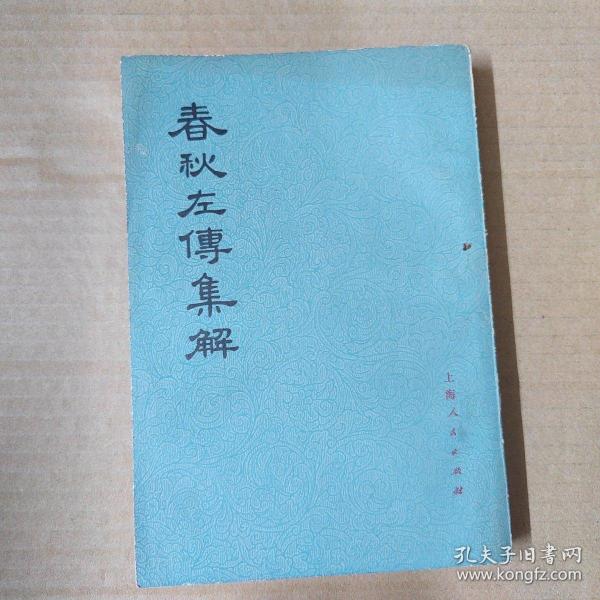 春秋左傳集解
上海人民出版社
孔夫子旧书网
www.kongfz.com